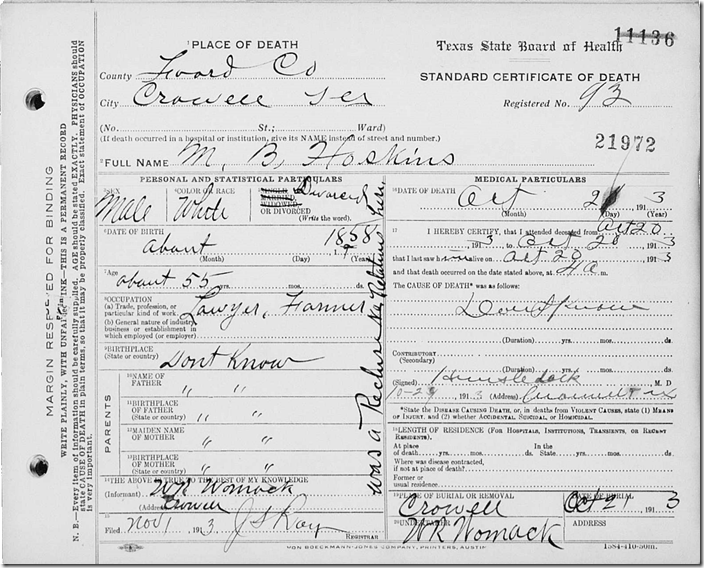 11136
PLACE OF DEATH
County Foard Co
City Crowell Tex
Texas State Board of Health
STANDARD CERTIFICATE OF DEATH
Registered No. 93
(No. St.; Ward)
(If death occurred in a hospital or institution, give its NAME instead of street and number.)
21972
FULL NAME M. B. Hoskins
PERSONAL AND STATISTICAL PARTICULARS
SEX
Male
COLOR OR RACE
White
SINGLE
MARRIED
WIDOWED
OR DIVORCED
(Write the word).
Divorced
DATE OF BIRTH
about 1858
(Month) (Day) (Year)
Age
about 55 yrs. mos. ds.
OCCUPATION
(a) Trade, profession, or
particular kind of work
Lawyer, Farmer
(b) General nature of industry,
business or establishment in
which employed (or employer)
BIRTHPLACE
(State or country)
Dont Know
PARENTS
10 NAME OF
FATHER
" "
11 BIRTHPLACE
OF FATHER
(State or country)
" "
12 MAIDEN NAME
OF MOTHER
" "
13 BIRTHPLACE
OF MOTHER
(State or country)
" "
14 THE ABOVE IS TRUE TO THE BEST OF MY KNOWLEDGE
(Informant) WR Womack
(Address) Crowell
15
Filed Nov 1 1913 J S Ray
REGISTRAR
was a Recluse No Relatives here
MEDICAL PARTICULARS
DATE OF DEATH
Oct 1913
(Month) (Day) (Year)
17 I HEREBY CERTIFY, that I attended deceased from Oct 20
1913 to Oct 20 1913
that I last saw h alive on Oct 20 1913
and that death occurred on the date stated above, at m.
The CAUSE OF DEATH* was as follows:
Dont Know
(Duration) yrs. mos. ds.
CONTRIBUTORY
(Secondary)
(Duration) yrs. mos. ds.
(Signed) M. D
1913 (Address)
*State the DISEASE CAUSING DEATH, or, in deaths from VIOLENT CAUSES, state (1) MEANS
OF INJURY; and (2) whether ACCIDENTAL, SUICIDAL, or HOMICIDAL.
LENGTH OF RESIDENCE (FOR HOSPITALS, INSTITUTIONS, TRANSIENTS, OR RECENT
RESIDENTS).
At place In the
of death yrs. mos. ds. State yrs. mos. ds.
Where was disease contracted,
if not at place of death?
Former or
usual residence
PLACE OF BURIAL OR REMOVAL
Crowell
DATE OF BURIAL
Oct 21 1913
UNDERTAKER
WR Womack
ADDRESS
VON BOECKMANN-JONES COMPANY, PRINTERS, AUSTIN
1584-410-50m.
MARGIN RESERVED FOR BINDING
WRITE PLAINLY, WITH UNFADING INK—THIS IS A PERMANENT RECORD
N. B.—Every item of information should be carefully supplied. AGE should be stated EXACTLY. PHYSICIANS should
state CAUSE OF DEATH in plain terms, so that it may be properly classified. Exact statement of OCCUPATION
is very important.